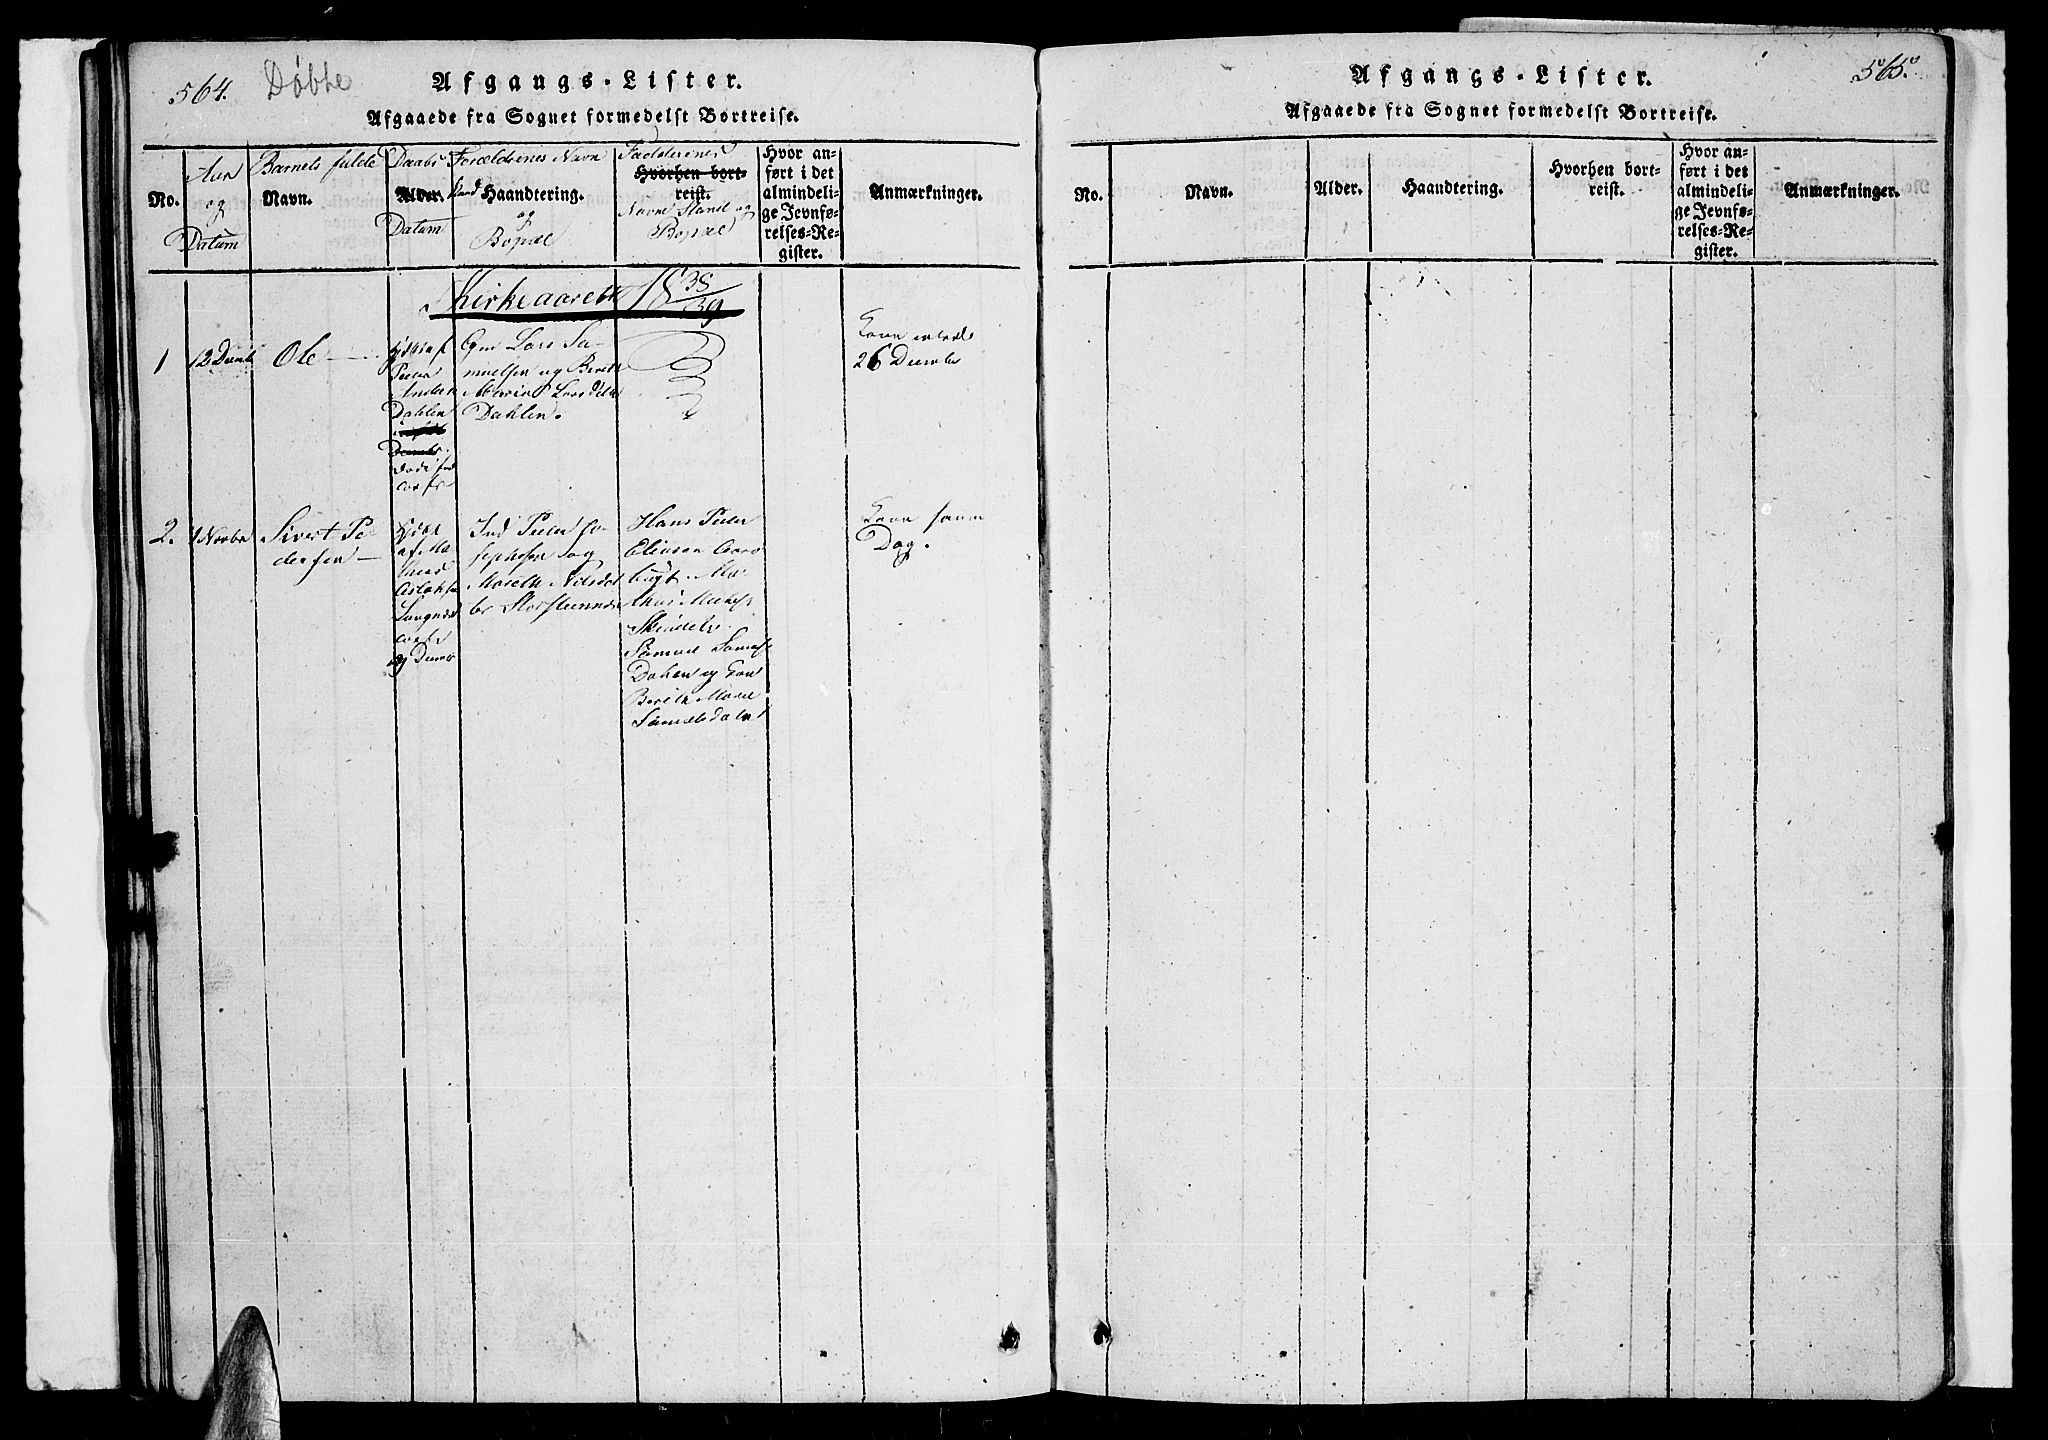 564. Døbte
Afgangs-Lister.
Afgaaede fra Sognet formedelst Bortreise.
No.
Aar
og
Datum
Barnets fulde
Navn.
Daabs
Alder.
Datum
Forældrenes Navn
Stand Haandtering.
og
Bopæl
Faddernes
Hvorhen bort-
reist.
Navne Stand og
Bopæl
Hvor an-
ført i det
almindeli-
ge Jevnfø-
relses-Re-
gister.
Anmærkninger.
Kirkeaaret 1838/39
1
12 Decmb
Ole
Hjdøbt af
Peder
Anders
Dahlen
Lars Sa-
muelsen og Berith
Maria Larsdatter
Dahlen.
26 Decmbr
2.
1 Novbr
Sivert Pe-
dersen
Hjdøp
af Ma-
thias
Aslaksen
Langnes
Ind Peder Jo-
sephsen og
Mareth Nilsdat-
ter Storsteennes
Hans Peder
Eliasen
Samuel
Berith Marie
Samuelsdatter
samme
Dag.
Afgangs-Lister.
565.
Afgaaede fra Sognet formedelst Bortreise.
No.
Navn.
Alder.
Haandtering.
Hvorhen bort-
reist.
Hvor an-
ført i det
almindeli-
ge Jevnfø-
relses-Re-
gister.
Anmærkninger.